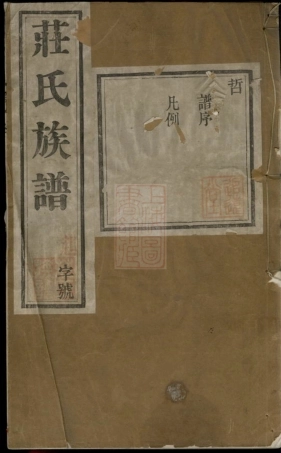 莊氏族譜
字號
哲
譜序
凡例